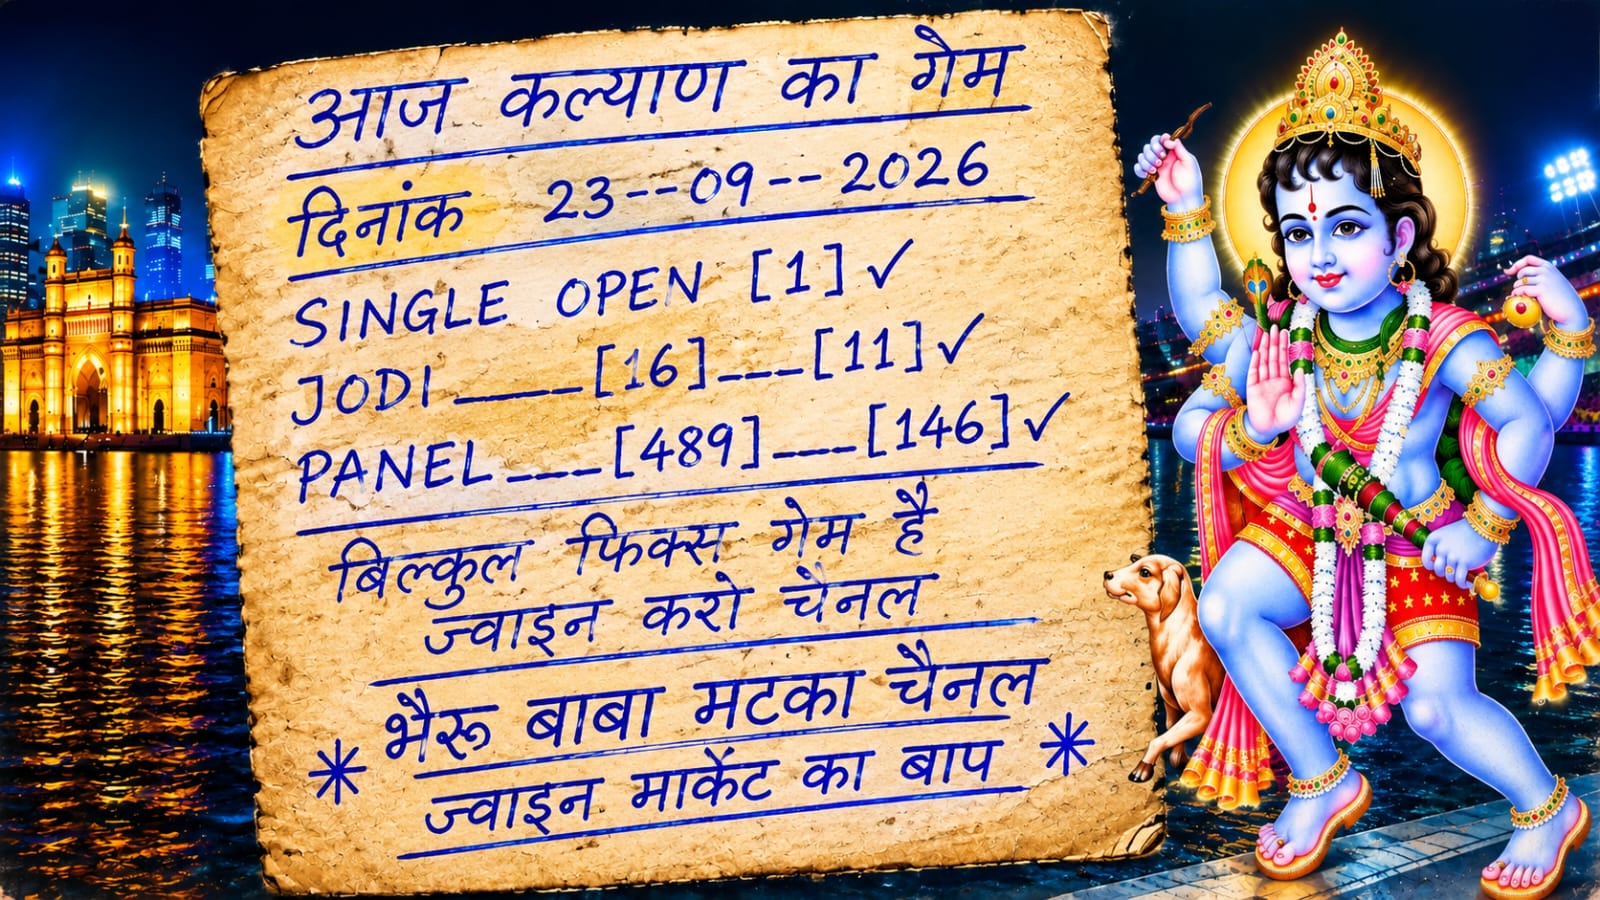 आज कल्याण का गेम
दिनांक 23--09--2026
SINGLE OPEN [1]✓
JODI____[16]___[11]✓
PANEL___[489]___[146]✓
बिल्कुल फिक्स गेम है
ज्वाइन करो चैनल
भैरू बाबा मटका चैनल
* ज्वाइन मार्केट का बाप *